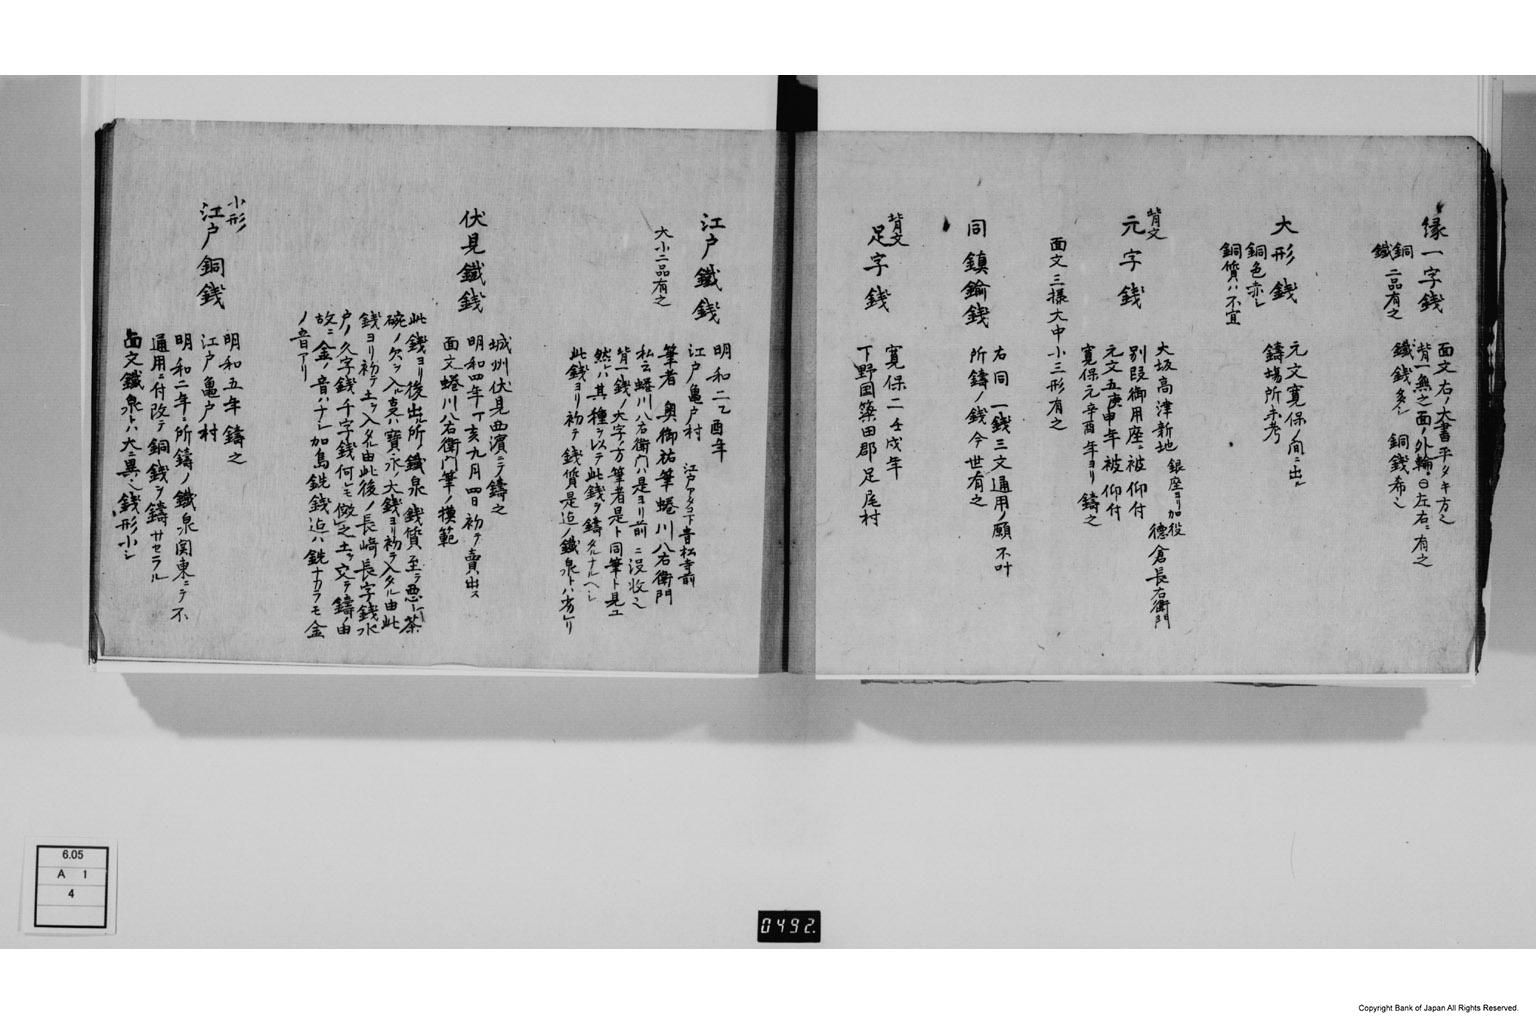 縁一字銭
銅
鐵 二品有之
面文右ノ大書平タキ方也
背一無之面ノ外輪ノ日左右ニ有之
鐵銭多シ 銅銭希也
大形銭
銅色赤シ
銅質ハ不宜
元文寛保ノ間ニ出ル
鑄場所未考
背文
元字銭
大坂高津新地 銀座ヨリ加役
別段御用座ニ被仰付 徳倉長右衛門
元文五庚申年被仰付
寛保元辛酉年ヨリ鑄之
面文三様大中小三形有之
同鎮鍮銭
右同 一銭三文通用ノ願不叶
所鑄ノ銭今世有之
背文
足字銭
寛保二壬戌年
下野国簗田郡足尾村
江戸鐵銭
大小二品有之
明和二乙酉年
江戸亀戸村
筆者 奥御祐筆蜷川八右衛門
私云蜷川八右衛門ハ是ヨリ前ニ没故也
背一銭ノ大字ノ方筆者是ト同筆ト見ユ
此銭ヨリ初テ銭質是迄ノ鐵泉トハ劣レリ
伏見鐵銭
城州伏見西濵ニテ鑄之
明和四年丁亥九月四日初テ賣出ス
面文蜷川八右衛門筆ノ模範
此銭ヨリ後出ル所ノ鐵泉銭質至テ悪シ茶
銭ヨリ初テ土ヲ入タル由此後ノ長崎長字銭水
戸ノ久字銭千字銭何レモ倣之土ヲ交テ鑄ル由
故ニ金ノ音ハナシ加島銑銭迄ハ銑ナカラモ金
ノ音アリ
小形
江戸銅銭
明和五年鑄之
江戸亀戸村
明和二年ニ所鑄ノ鐵泉関東ニテ不
通用ニ付改テ銅銭ヲ鑄サセラル
面文鐵泉トハ大ニ異也銭形小シ
6.05
A 1
4
0492.
Copyright Bank of Japan All Rights Reserved.